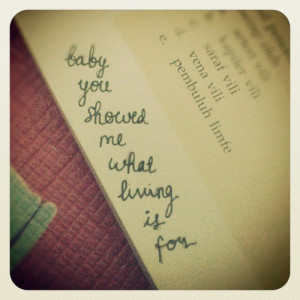 baby
you
showed
me
what
living
is
for
saraf vili
e. vena vili
pembuluh limfe